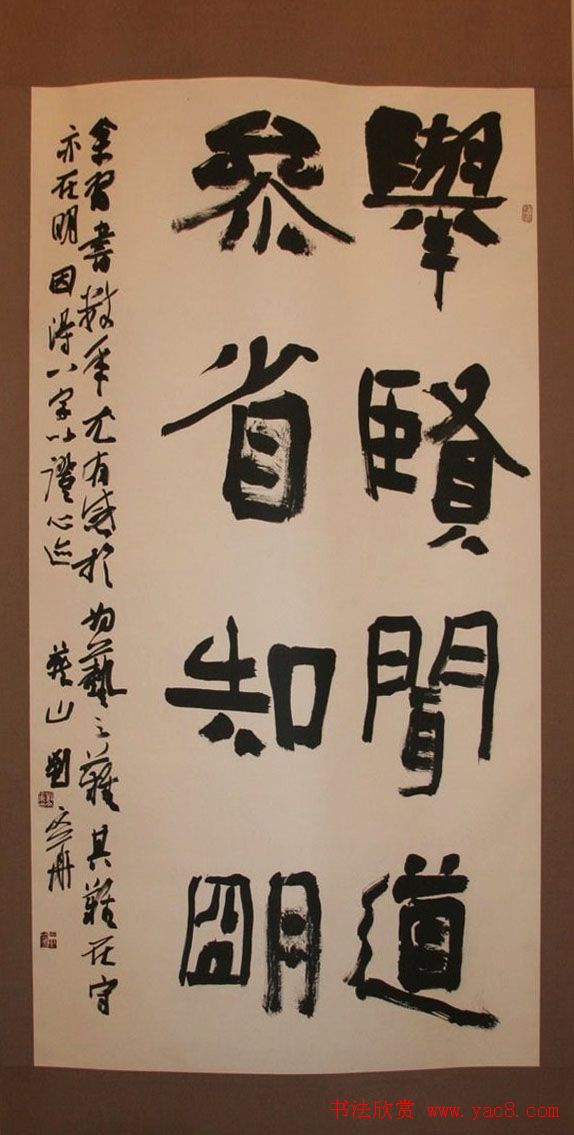 舉賢聞道
參省知明
余習書數年尤有感於為藝之難其難在守
亦在明因得八字以證心迹
山劉
书法欣赏 www.yac8.com